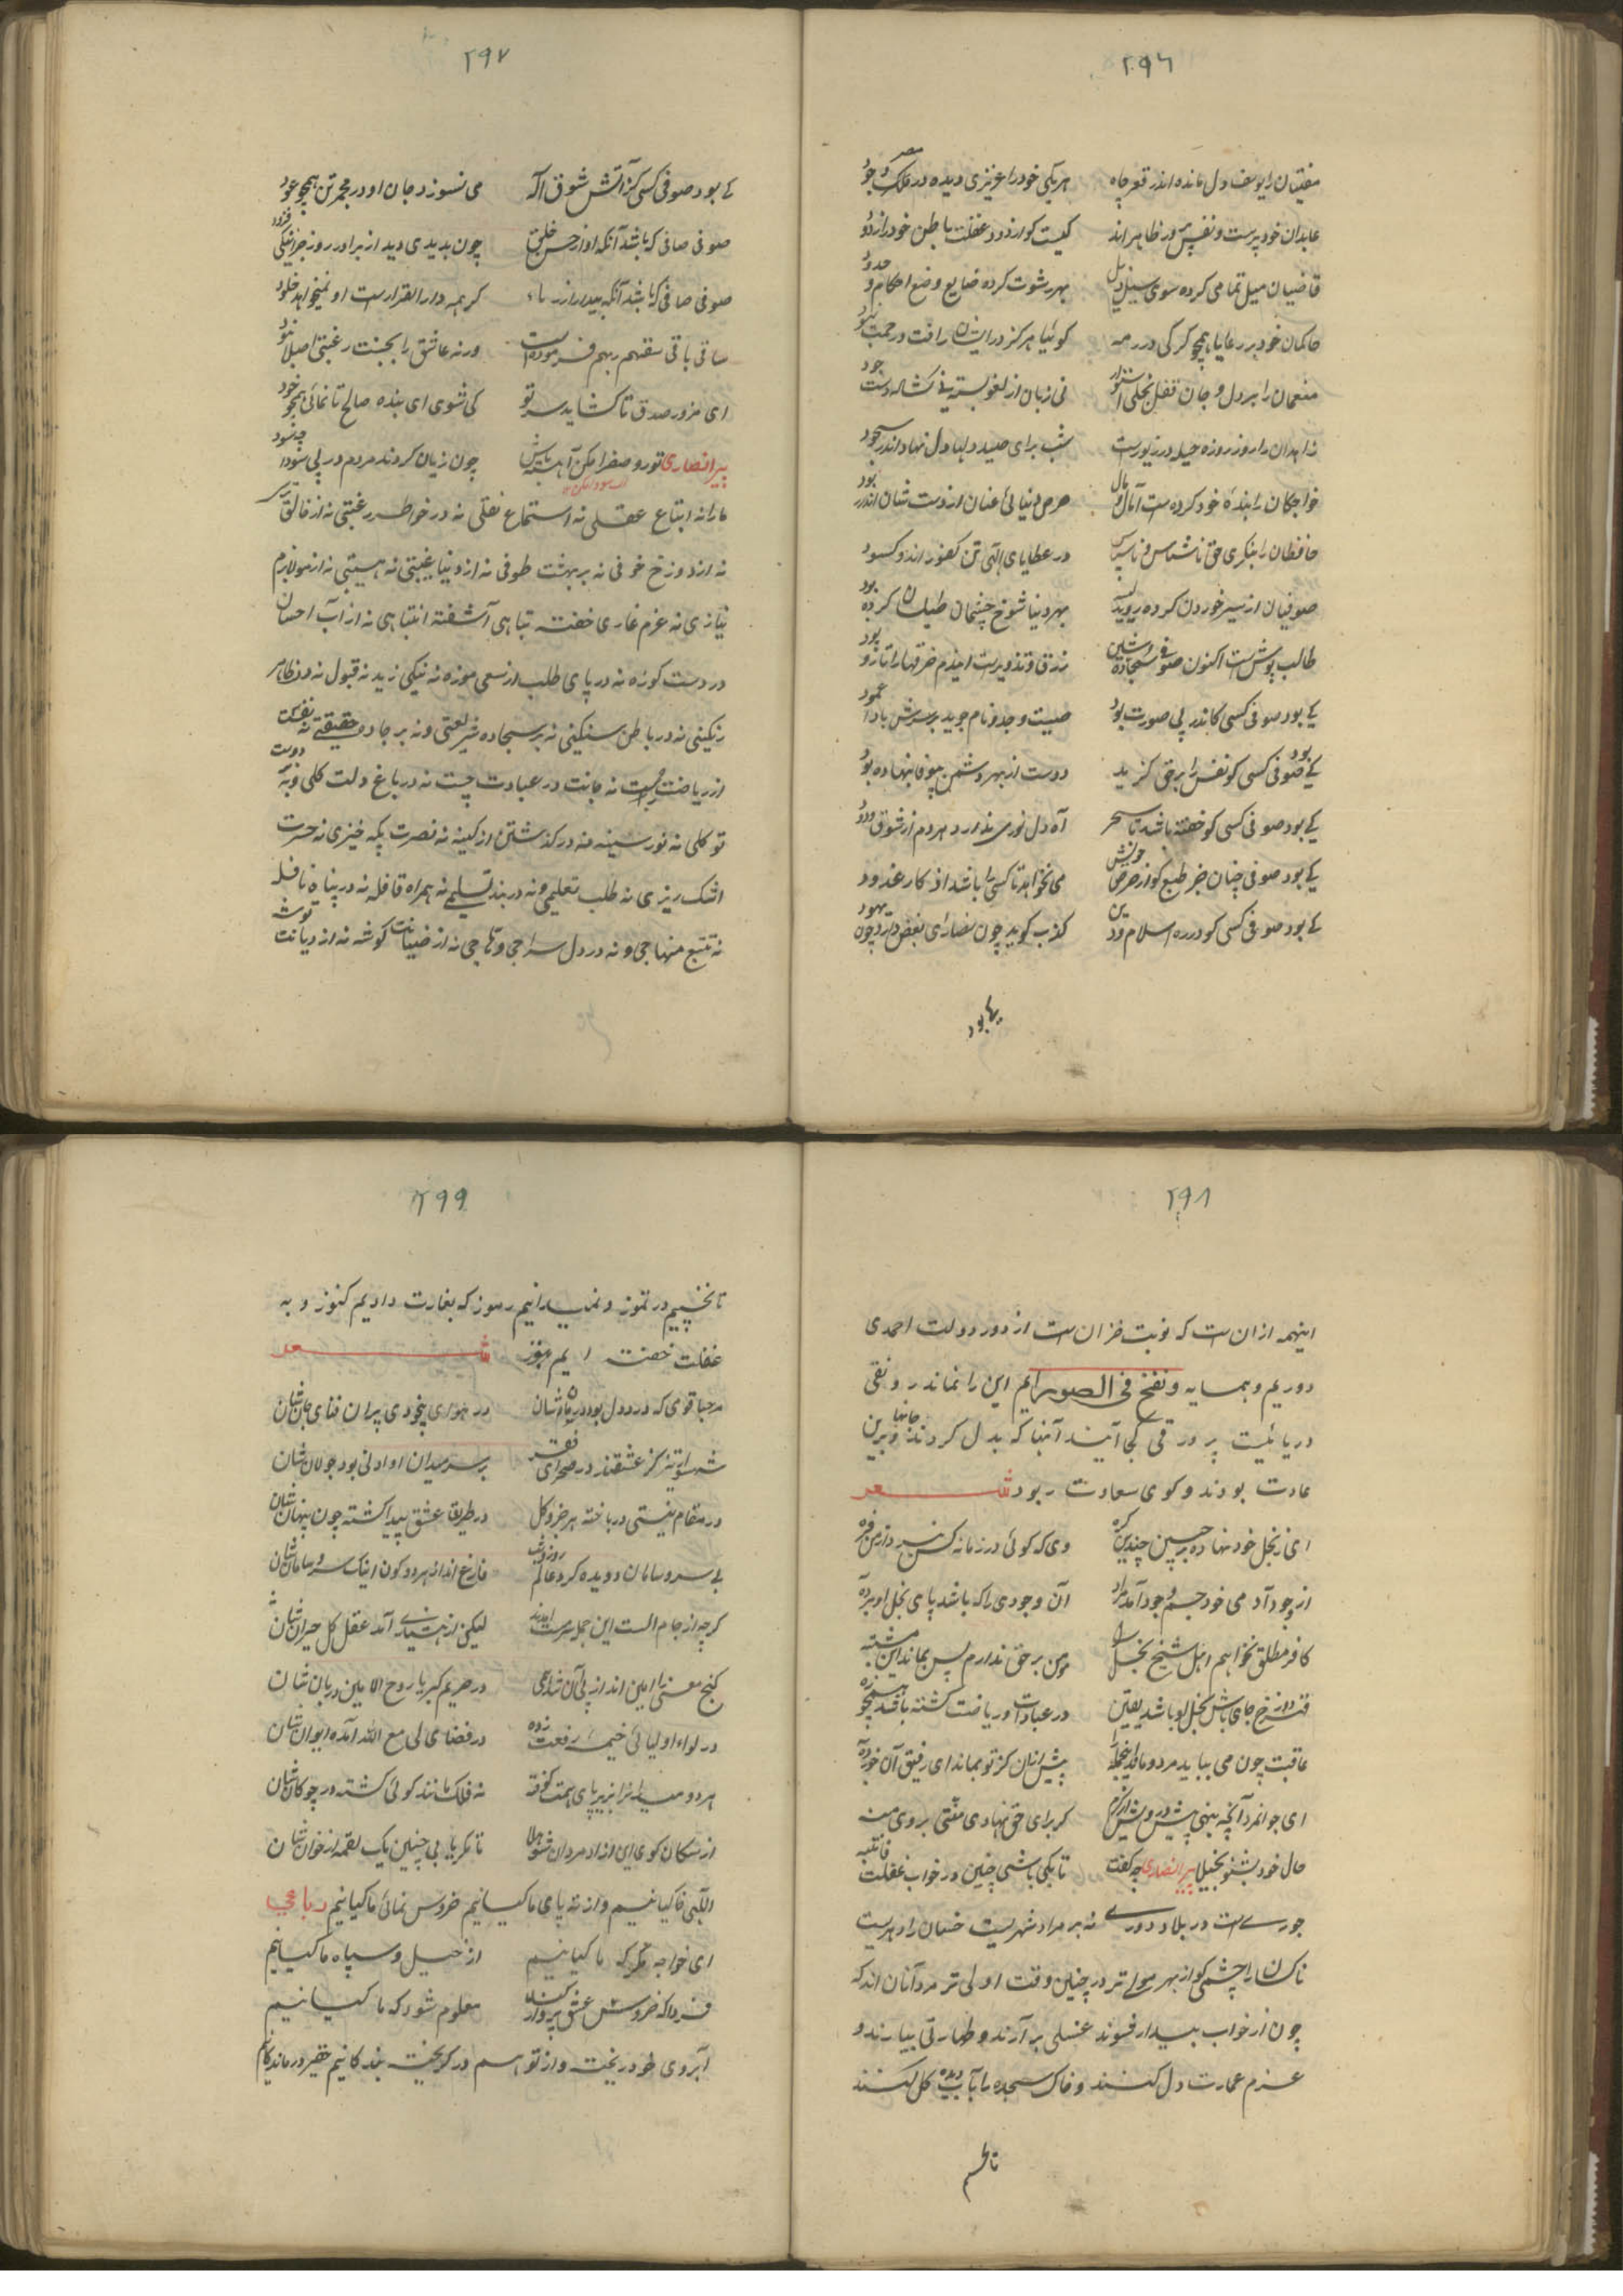 ۲۹۶
مفتیان را یوسف دل مانده اندر قعر چاه هر یکی خود را عزیزی دیده در ملک وجود
عابدان خودپرست و نفس در ظاهر اند کیست کو از درد غفلت باطن خود را زدود
قاضیان میل تمامی کرده سوی بهر رشوت کرده ضایع وضع احکام و حدود
حاکمان خود بر رعایا همچو گرگی در رمه گوئیا هرگز در ایشان رافت و رحمت نبود
منعمان را بر دل و جان قفل بخلی نی زبان از لغو بسته نی گشاده دست جود
زاهدان را روز روزه حیله در تزویر ست شب برای صید دلها دل نهاد اندر سجود
خواجگان را بنده خود کرده ست آمال و مال حرص دنیائی عنان از دست شان اندر ربود
حافظان را بنگری حق ناشناس و ناسپاس در عطایای الهی کفور اند و کنود
صوفیان از سیر خوردن کرده بهر دنیا شوخ چشمان طیلسان کرده
طالب پوش ست اکنون صوفی سجاده زرق و تزویرست خرقها را تار و پود
کے بود صوفی کسی کاندر پی صورت بود صیت وجد و نام جوید بر سرش بادا عمود
کے بود صوفی کسی کو نفس را بر حق گزید دوست از بهر دشمن بیوفا بنهاده بود
کے بود صوفی کسی کو خفته باشد تا سحر آه دل نوری ندارد هر دم از شوق ودود
کے بود صوفی چنان خر طبع کو از حرص خویش می نخواهد تا کسی را باشد از کار غدود
کے بود صوفی کسی کو در ره اسلام و دین کذب گوید چون نصارای بغض دارد چون یهود
کے بود
۲۹۷
کے بود صوفی کسی کز آتش شوق اله می نسوزد جان او در مجمر تن همچو عود
صوفی صافی که باشد آنکه او از حسن خلق چون بدیدی دید از برادر روز جز نیکی فزود
صوفی صافی که باشد آنکه بیدار از گر همه دار القرارست او نمیخواهد خلود
ساقی باقی سقهم ربهم فرموده است ورنه عاشق را بجنت رغبتی اصلا نبود
ای مزور صدق تا گشاید سر تو کی شوی ای بنده صالح تا نمائی همچو خود
پیر انصاری تو رو صفرا مکن آهسته باش چون زیان کردند مردم در پی سودا چه سود
ما را نه اتباع عقلی نه استماع نقلی نه در خواطر رغبتی نه از خالق
نه از دوزخ خوفی نه بر بهشت طوفی نه از دنیا غیبتی نه هیبتی نه از مولا بزم
نیازی نه عزم غازی خفته تباهی آشفته انتباهی نه از آب احسان
در دست کوزه نه در پای طلب از سعی موزه نه نیکی زید نه قبول نه در ظاهر
رنگینی نه در باطن سنگینی نه بر سجاده شریعتی و نه بر جاده حقیقتی نه نفس
از ریاضت پست نه جانت در عبادت چست نه در باغ دولت گلی و نه دوست
توکلی نه نور سینه نه در گذشتن از کینه نه نصرت پگه خیزی نه حسرت
اشک ریزی نه طلب تعلیمی و نه در بند تسلیمی نه همراه قافله نه در پناه نافله
نه تتبع منهاجی و نه در دل سراجی و تاجی نه از ضیافت گوشه نه از دیانت توشه
۲۹۸
اینهمه از آن ست که نوبت خزان ست از دور دولت احمدی
دوریم و همسایه و نفخ فی الصور ایم این را نماند رونقی
دریائیست پر ورقی کجا آیند آنها که بدل کردند جانها و برین
عادت بودند و گوی سعادت ربودند شعر
ای ز بخل خود نهاده بر جبین چندین گره وی که گوئی در زمانه کس نبرد از من فره
از وجود آدمی خود جسم وجود آمد مراد آن وجودی را که باشد پای بخل او بزه
کافر مطلق نخواهم اهل شیخ بخل را مومن بر حق ندارم پس بماند این مشتبه
قعر دوزخ جای باشد بخل او باشد یقین در عبادات و ریاضت گشته باشد همچو زه
عاقبت چون می بباید مرد و ماند اینجمله را پیش از ان کز تو بماند ای رفیق آن خود بده
ای جوانمرد آنچه بینی پیش درویش از کرم گر برای حق نهادی منتی بر وی منه
حال خود بشنو بخیلا پیر انصاری چه گفت تا بکی باشی چنین در خواب غفلت فانتبه
جوری ست در بلاد و دوری نه بر مراد شهریست خسان را و هریست
ناکسان را چشمی کو از بهر مولی تر در چنین وقت اولی تر مردانان اند که
چون از خواب بیدار شوند غسلی بر آرند و طهارتی بیارند و
عزم عمارت دل کنند و خاک سجده را بآب دیده گل کنند
تا نخسپیم
۲۹۹
تا نخسپیم در تموز و نمیدانیم رموز که بغارت دادیم کنوز و به
غفلت خفته ایم هنوز شعر
مرحبا قومی که درد دل بود درمان شان در هوای بیخودی پران فنای جان شان
شهسوارانی کز عشقند در صحرای فقر بر سر میدان او ادنی بود جولان شان
در مقام نیستی در باخته هر جزو کل در طریقا عشق پیدا گشته چون پنهان شان
بے سر و سامان دویده گرد عالم روز و شب فارغ اند از هر دو کون اینک سر و سامان شان
گرچه از جام الست این جمله سرمست آمدند لیکن از هشیاری آمد عقل کل حیران شان
گنج معنی را امین اند از پی آن در حریم کبریا روح الامین دربان شان
در لواء اولیائی خیمه رفعت زده در فضای لی مع الله آمده ایوان شان
هر دو میدان را بزیر پای همت کوفته نه فلک مانند گوئی گشته در چوگان شان
از سگان کوی این مردان شو هلا تا مگر یابی چنین یک لقمه از خوان شان
الهی خاکیانیم و از ته پای ما کیانیم خروس نمائی ما کیانیم رباعی
ای خواجه مگر که ما کیانیم از خیل و سپاه ما کیانیم
فردا که خروس عشق پرواز کند معلوم شود که ما کیانیم
آبروی خود ریخته و از تو هم در گریخته بندگانیم حقیر درمانده